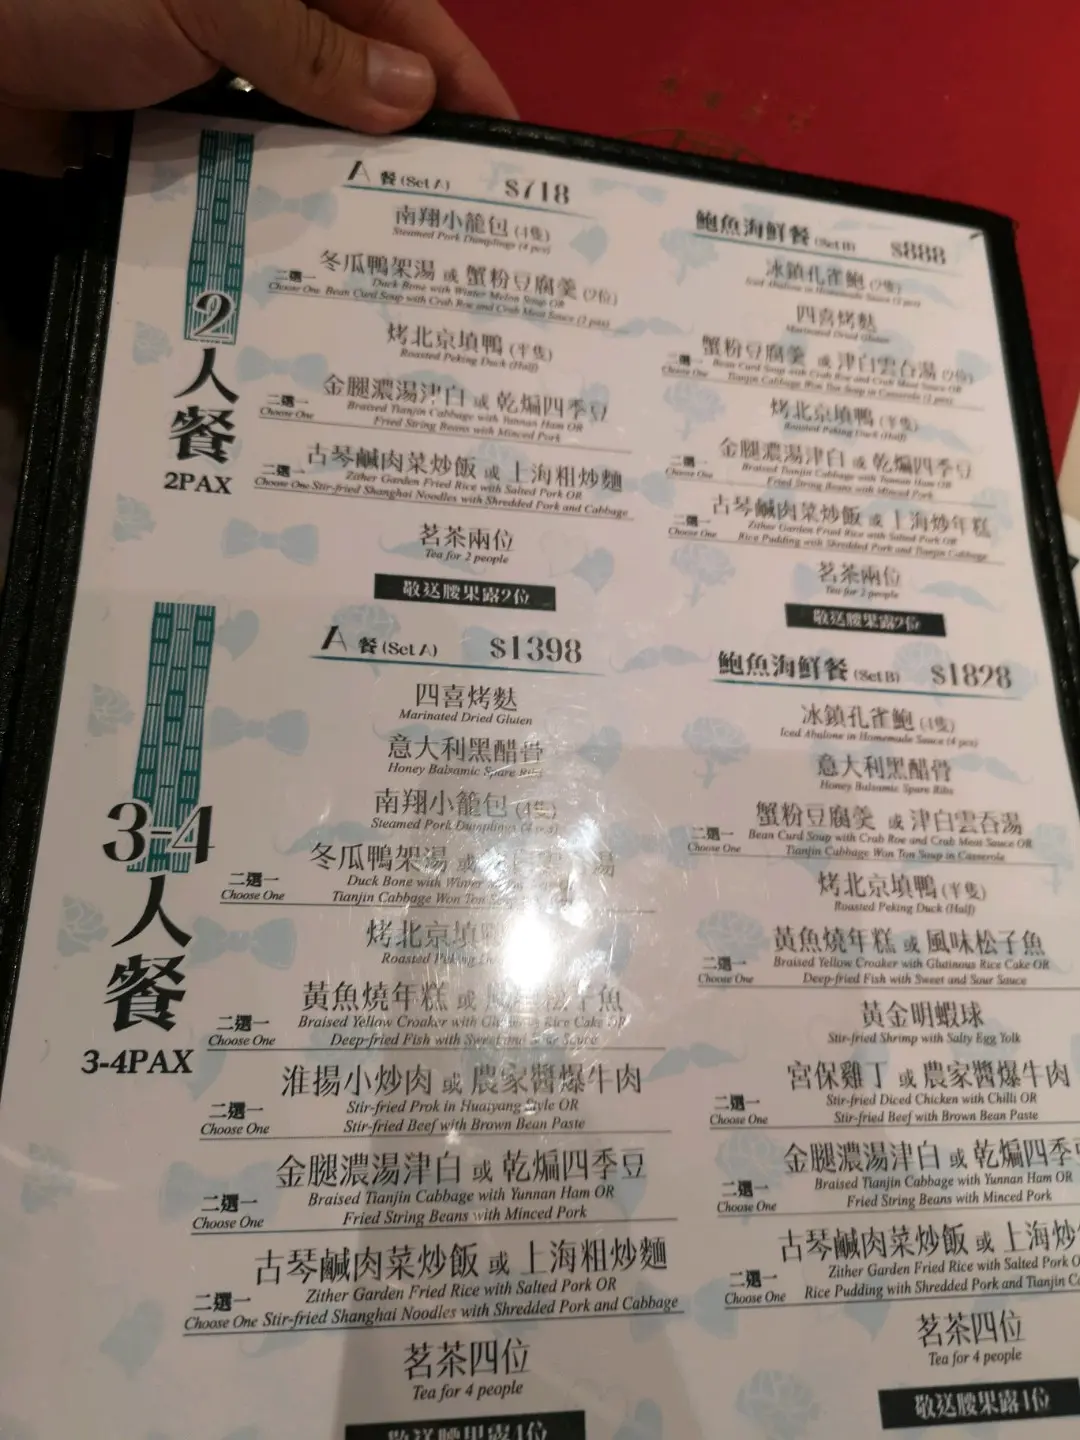 2
人
餐
2PAX
A 餐 (Set A) $718
南翔小籠包 (4隻)
Steamed Pork Dumplings (4 pcs)
冬瓜鴨架湯 或 蟹粉豆腐羹 (2位)
二選一
Duck Bone with Winter Melon Soup OR
Choose One Bean Curd Soup with Crab Roe and Crab Meat Sauce (2 pax)
烤北京填鴨 (半隻)
Roasted Peking Duck (Half)
金腿濃湯津白 或 乾煸四季豆
二選一
Braised Tianjin Cabbage with Yunnan Ham OR
Choose One
Fried String Beans with Minced Pork
古琴鹹肉菜炒飯 或 上海粗炒麵
二選一
Zither Garden Fried Rice with Salted Pork OR
Choose One Stir-fried Shanghai Noodles with Shredded Pork and Cabbage
茗茶兩位
Tea for 2 people
敬送腰果露2位
鮑魚海鮮餐 (Set B) $888
冰鎮孔雀鮑 (2隻)
Iced Abalone in Homemade Sauce (2 pcs)
四喜烤麩
Marinated Dried Gluten
蟹粉豆腐羹 或 津白雲吞湯 (2位)
二選一
Bean Curd Soup with Crab Roe and Crab Meat Sauce OR
Choose One
Tianjin Cabbage Won Ton Soup in Casserole (2 pax)
烤北京填鴨 (半隻)
Roasted Peking Duck (Half)
金腿濃湯津白 或 乾煸四季豆
二選一
Braised Tianjin Cabbage with Yunnan Ham OR
Choose One
Fried String Beans with Minced Pork
古琴鹹肉菜炒飯 或 上海炒年糕
二選一
Zither Garden Fried Rice with Salted Pork OR
Choose One
Rice Pudding with Shredded Pork and Tianjin Cabbage
茗茶兩位
Tea for 2 people
敬送腰果露2位
3-4
人
餐
3-4PAX
A 餐 (Set A) $1398
四喜烤麩
Marinated Dried Gluten
意大利黑醋骨
Honey Balsamic Spare Ribs
南翔小籠包 (4隻)
Steamed Pork Dumplings (4 pcs)
冬瓜鴨架湯 或
二選一
Duck Bone with Winter
Choose One
Tianjin Cabbage Won Ton
烤北京填
Roasted Peking
黃魚燒年糕 或 子魚
二選一
Braised Yellow Croaker with Rice Cake OR
Choose One
Deep-fried Fish with Sweet and Sour Sauce
淮揚小炒肉 或 農家醬爆牛肉
二選一
Stir-fried Prok in Huaiyang Style OR
Choose One
Stir-fried Beef with Brown Bean Paste
金腿濃湯津白 或 乾煸四季豆
二選一
Braised Tianjin Cabbage with Yunnan Ham OR
Choose One
Fried String Beans with Minced Pork
古琴鹹肉菜炒飯 或 上海粗炒麵
二選一
Zither Garden Fried Rice with Salted Pork OR
Choose One Stir-fried Shanghai Noodles with Shredded Pork and Cabbage
茗茶四位
Tea for 4 people
敬送腰果露4位
鮑魚海鮮餐 (Set B) $1828
冰鎮孔雀鮑 (4隻)
Iced Abalone in Homemade Sauce (4 pcs)
意大利黑醋骨
Honey Balsamic Spare Ribs
蟹粉豆腐羹 或 津白雲吞湯
二選一
Bean Curd Soup with Crab Roe and Crab Meat Sauce OR
Choose One
Tianjin Cabbage Won Ton Soup in Casserole
烤北京填鴨 (半隻)
Roasted Peking Duck (Half)
黃魚燒年糕 或 風味松子魚
二選一
Braised Yellow Croaker with Glutinous Rice Cake OR
Choose One
Deep-fried Fish with Sweet and Sour Sauce
黃金明蝦球
Stir-fried Shrimp with Salty Egg Yolk
宮保雞丁 或 農家醬爆牛肉
二選一
Stir-fried Diced Chicken with Chilli OR
Choose One
Stir-fried Beef with Brown Bean Paste
金腿濃湯津白 或 乾煸四季
二選一
Braised Tianjin Cabbage with Yunnan Ham OR
Choose One
Fried String Beans with Minced Pork
古琴鹹肉菜炒飯 或 上海炒
二選一
Zither Garden Fried Rice with Salted Pork
Choose One
Rice Pudding with Shredded Pork and Tianjin
茗茶四位
Tea for 4 people
敬送腰果露4位